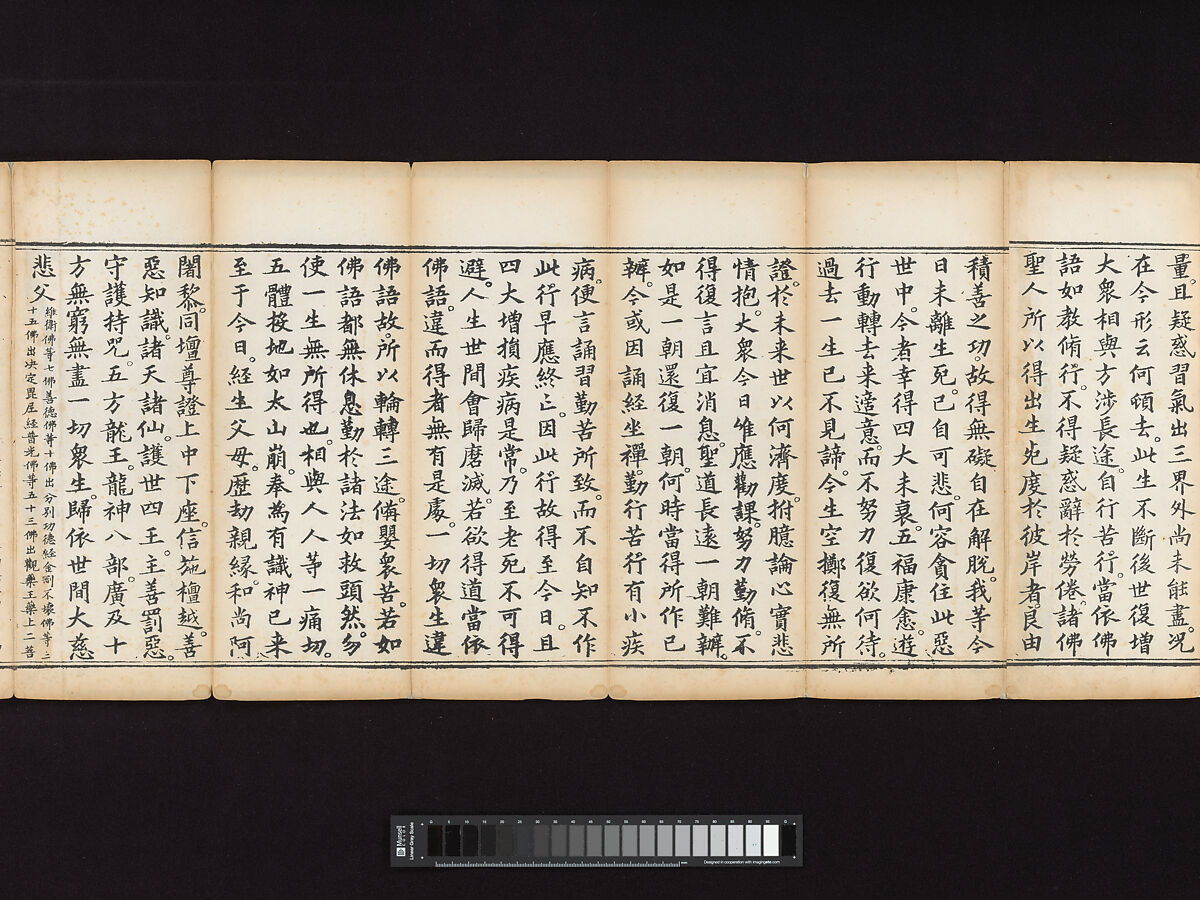 量。且疑惑習氣出三界外尚未能盡。况
在今形云何頓去。此生不斷後世復增
大衆相與方涉長途。自行苦行。當依佛
語如教脩行。不得疑惑辭於勞倦。諸佛
聖人所以得出生死度於彼岸者。良由
積善之功。故得無礙自在解脫。我等今
日未離生死。已自可悲。何容貪住此惡
世中。今者幸得四大未衰。五福康愈。遊
行動轉去来適意。而不努力復欲何待。
過去一生已不見諦。今生空擲復無所
證。於未来世以何濟度。拊臆論心實悲
情抱。大衆今日唯應勸課。努力勤脩。不
得復言且宜消息。聖道長遠一朝難辦。
如是一朝還復一朝。何時當得所作已
辦。今或因誦經坐禪。勤行苦行有小疾
病。便言誦習勤苦所致。而不自知不作
此行早應終亡。因此行故得至今日。且
四大增損疾病是常。乃至老死不可得
避。人生世間會歸磨滅。若欲得道當依
佛語。違而得者無有是處。一切衆生違
佛語故。所以輪轉三途。備嬰衆苦。若如
佛語都無休息勤於諸法如救頭然。勿
使一生無所得也。相與人人等一痛切。
五體投地如太山崩。奉為有識神已来
至于今日。經生父母。歷劫親緣。和尚阿
闍黎。同壇尊證上中下座。信施檀越。善
惡知識。諸天諸仙。護世四王。主善罰惡。
守護持咒。五方龍王。龍神八部。廣及十
方無窮無盡一切衆生。歸依世間大慈
悲父
維衛佛等七佛善德佛等十佛出分别功德經金剛不壞佛等三
十五佛出决定毘尼經普光佛等五十三佛出觀藥王藥上二菩
Munsell
COLOR
Linear Gray Scale
Designed in cooperation with imagingetc.com